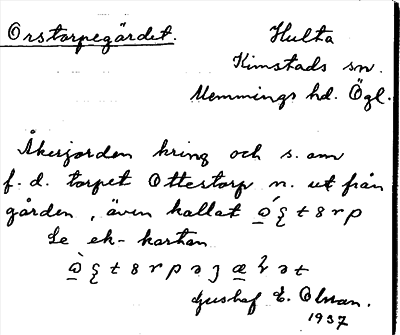 Orstorpegärdet. Hulta
Kimstads sn.
Memmings hd. Ögl.
Åkerjorden kring och s. om
f. d. torpet Ottestorp n. ut från
gården, även kallat
Se ek-kartan
Gustaf E. Olsson.
1937